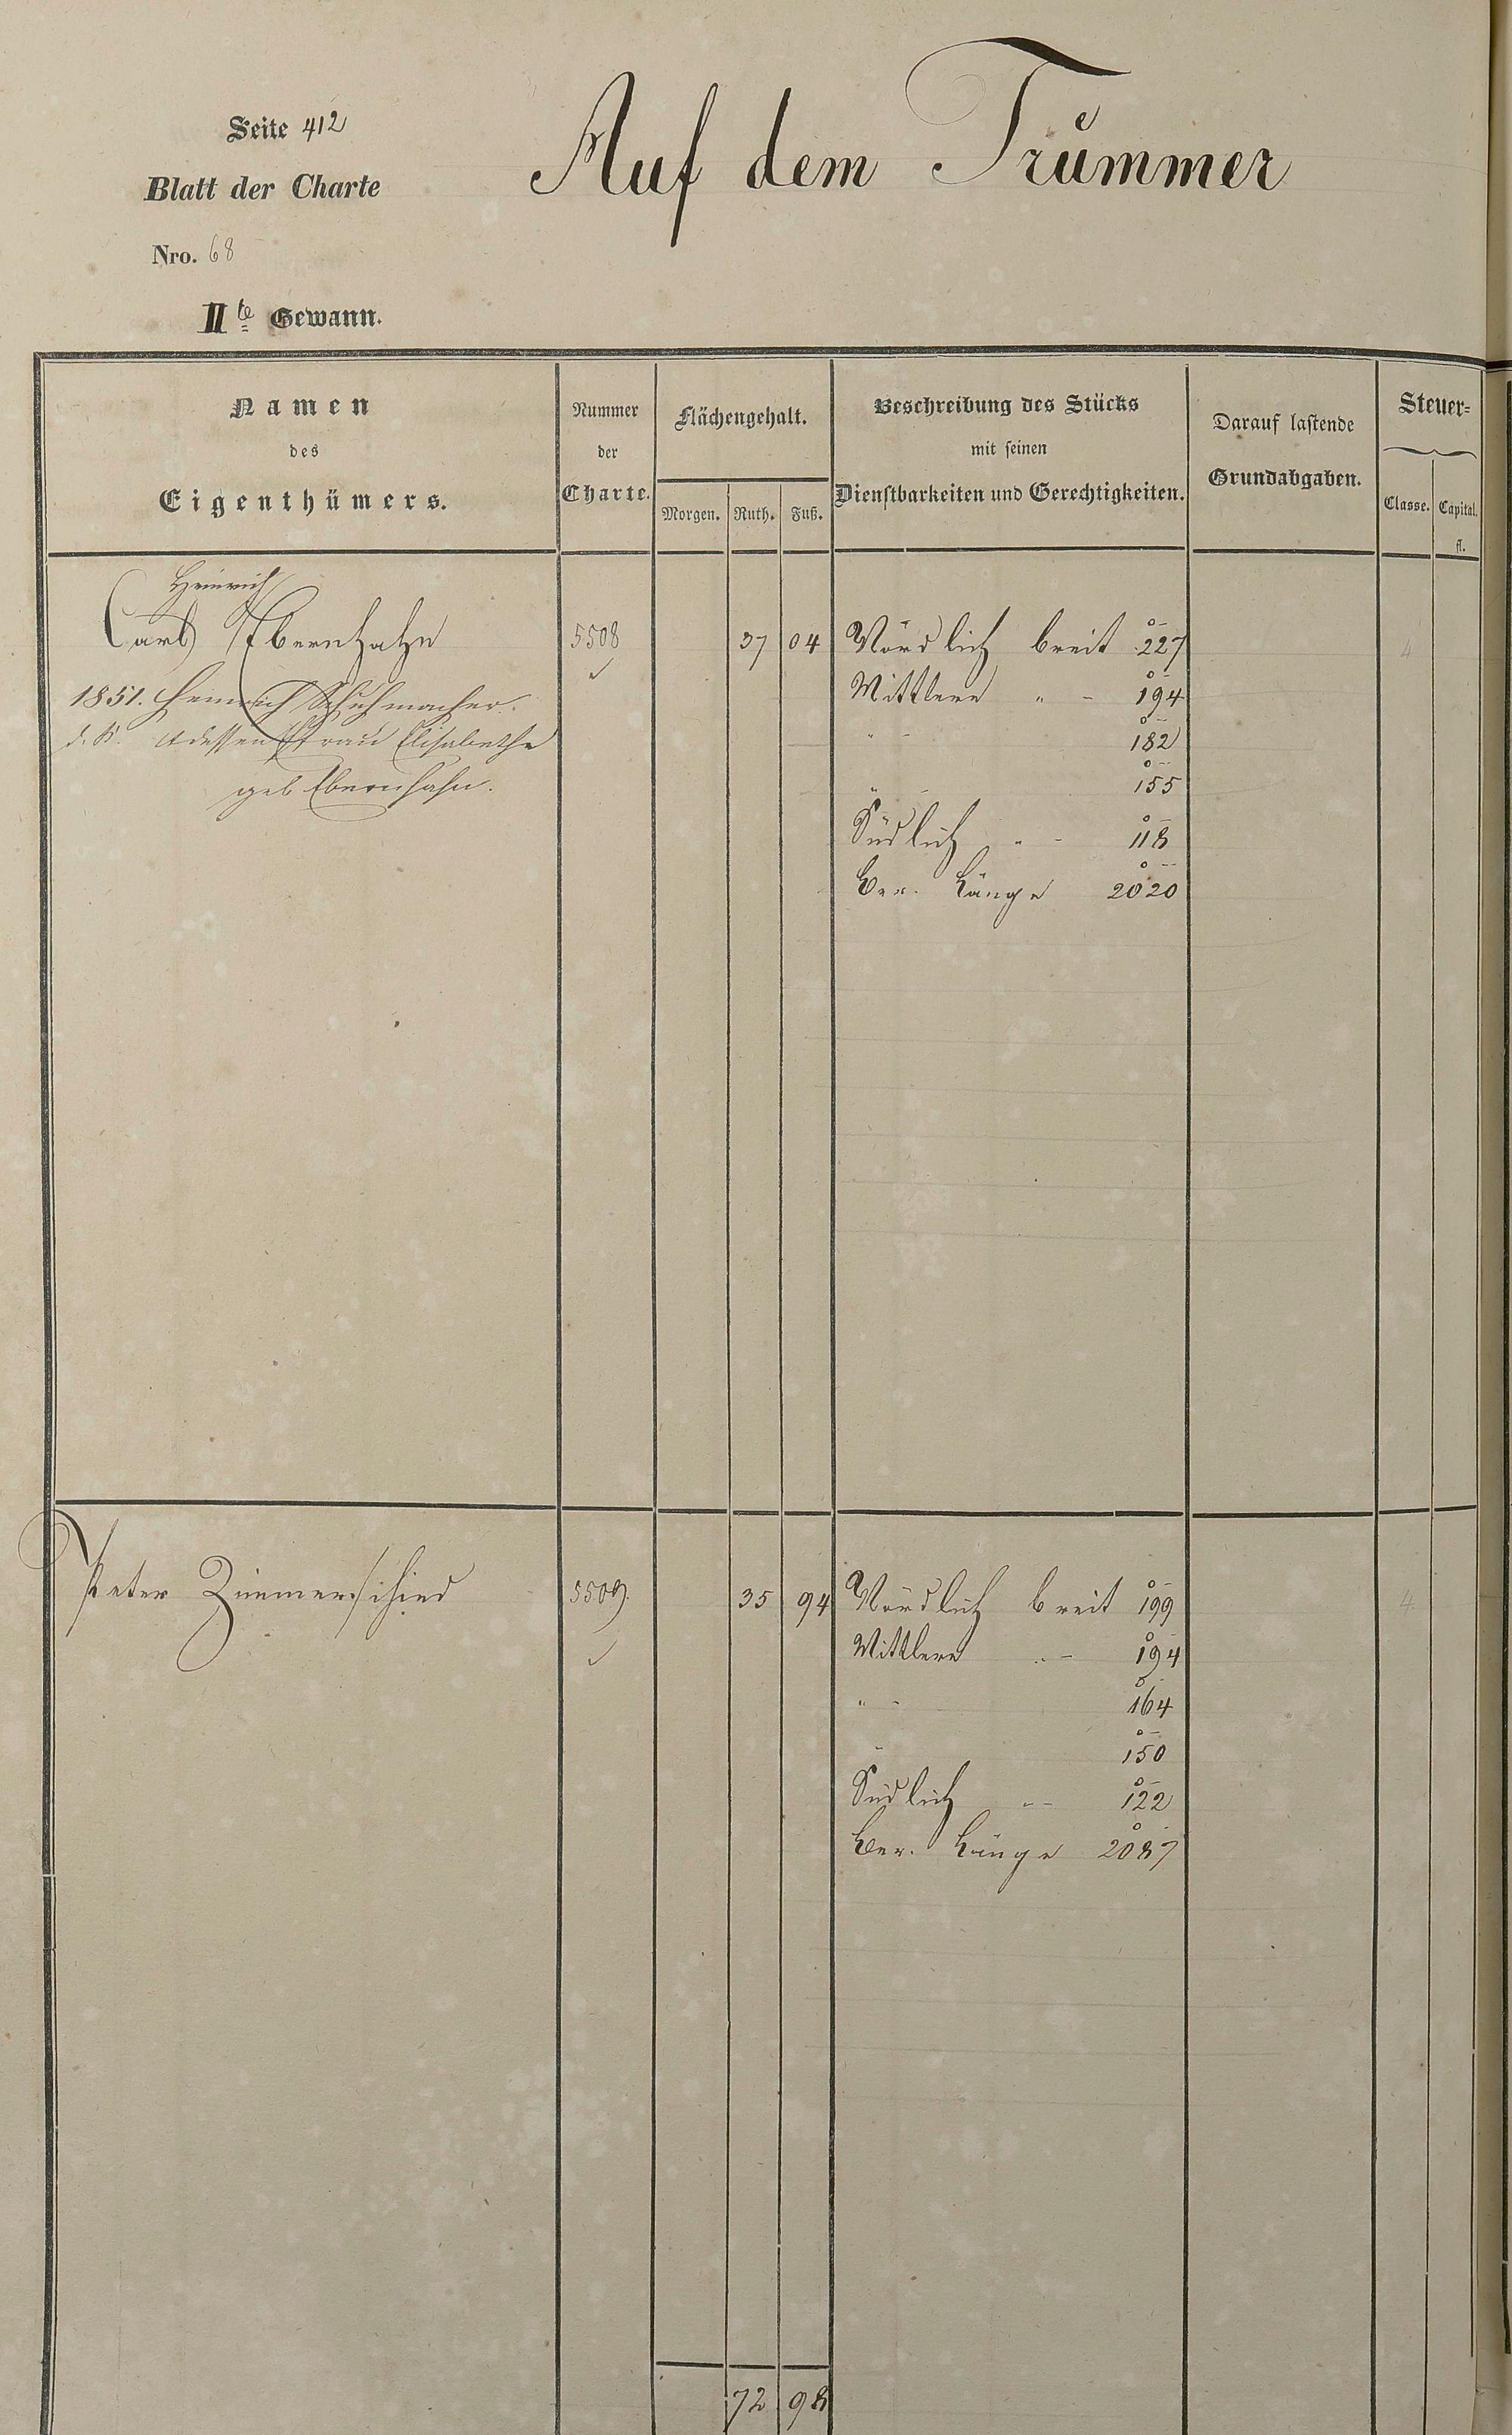 Seite 412
Auf dem Trummer
Blatt der Charte
Nro. 68
IIte Gewann.
Namen
des
Eigenthümers.
Nummer
der
Charte.
Flächengehalt.
Morgen. Ruth. Fuß.
Beschreibung des Stücks
mit seinen
Dienstbarkeiten und Gerechtigkeiten.
Darauf lastende
Grundabgaben.
Steuer=
Classe. Capital.
fl.
Heinrich
Carl Ebernhahn 5508 37 04 Nördlich breit 227 4
1851. Heinrich Schuhmacher Mittlere " - 194
d. K. dessen Frau Elisabethe " - 182
geb Ebernhahn. " 155
Südlich " - 118
Ber. Länge 2020
Peter Zimmerschied 5509. 35 94 Nördlich breit 199 4
Mittlere " - 194
" - 164
" 150
Südlich " - 122
Ber. Länge 2087
72 98